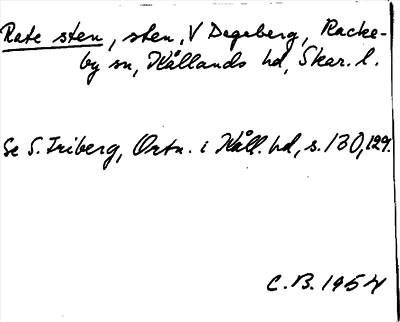 Rate sten, sten, V Degeberg, Racke-
by sn, Kållands hd, Skar. l.
Se S. Friberg, Ortn. i Kåll. hd, s. 130, 129.
C.B. 1954